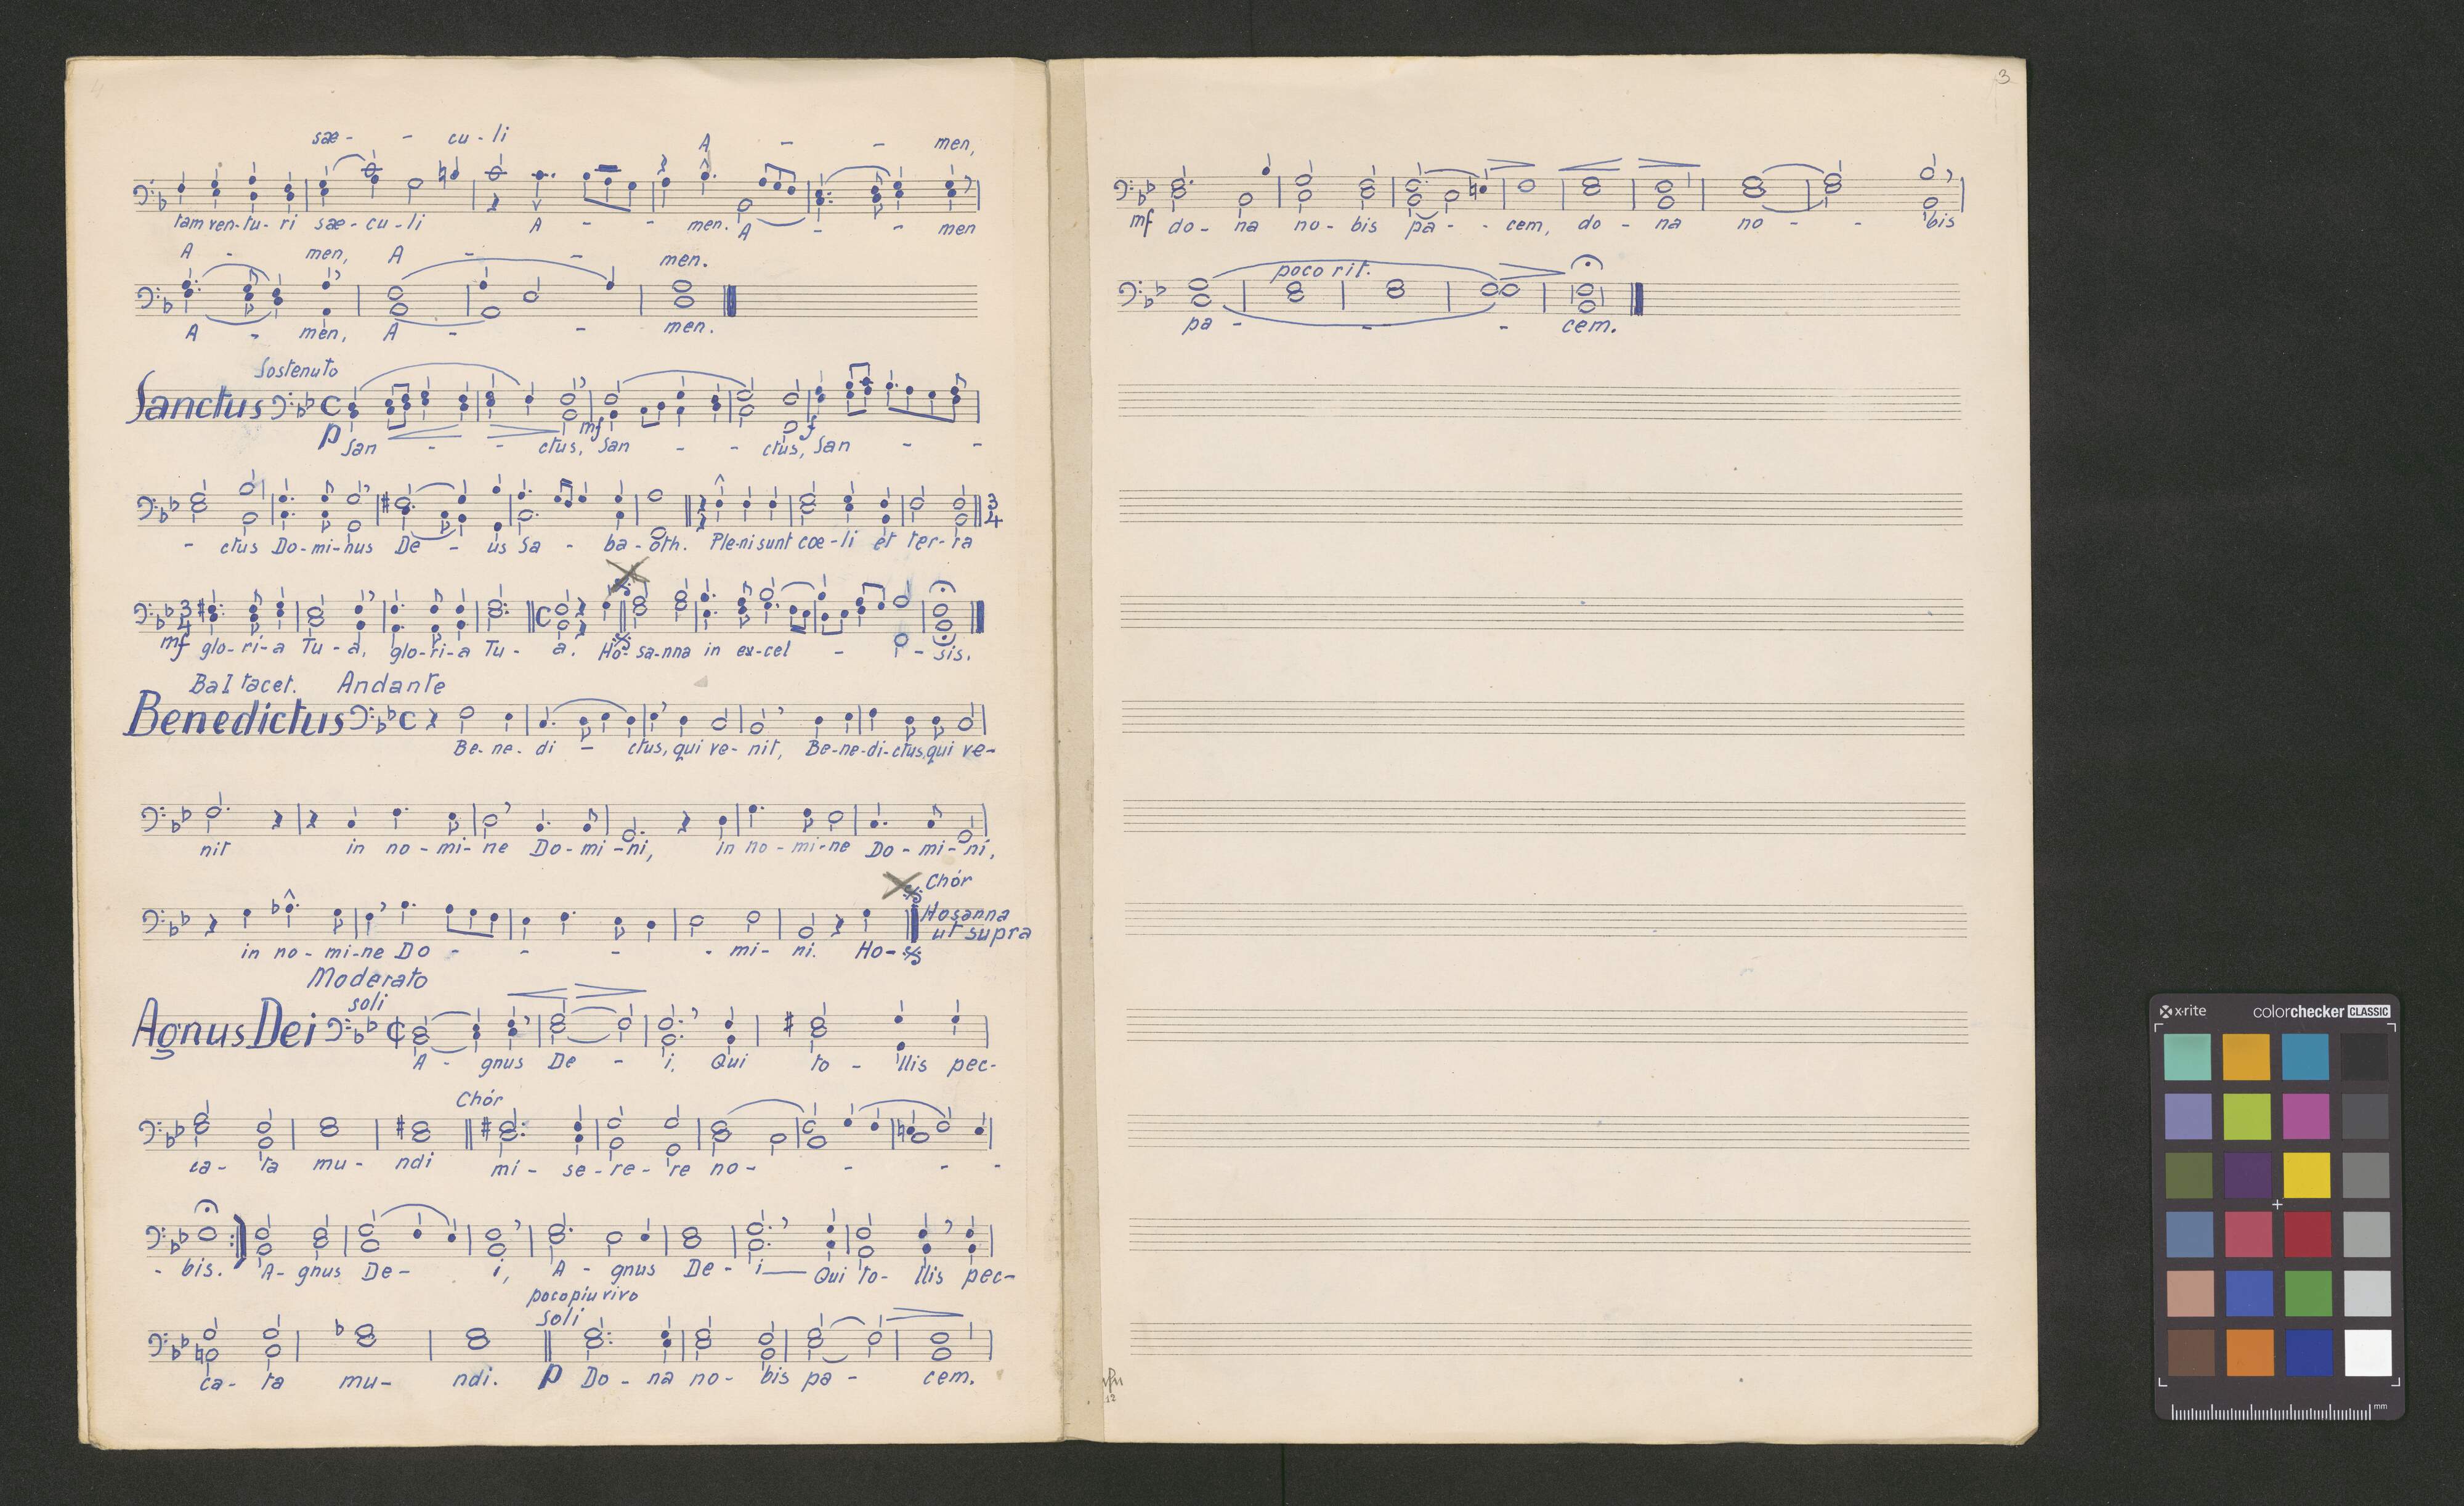 sæ - - cu - li A - - men,
tam ven-tu-ri sæ-cu-li A - - men. A - - men
A - men, A - - men.
A - men, A - - men.
Sostenuto
Sanctus C
p San - - ctus, mf San - - ctus, f San - -
- ctus Do-mi-nus De - us Sa - ba-oth. Ple-ni sunt coe-li et ter-ra
3
4
3
4
C
mf glo-ri-a Tu-a, glo-ri-a Tu - a. Ho-sa-nna in ex-cel - - sis.
Ba I tacet. Andante
Benedictus C
Be-ne-di - ctus, qui ve-nit, Be-ne-di-ctus, qui ve-
nit in no-mi-ne Do-mi-ni, in no-mi-ne Do-mi-ni,
Chór
Hosanna
ut supra
in no-mi-ne Do - - - - mi-ni. Ho-
Moderato
soli
Agnus Dei
A - gnus De - i. Qui to - llis pec-
Chór
ca - ta mu - ndi mi - se-re-re no - - - -
- bis. A-gnus De - i, A - gnus De - i Qui to-llis pec-
poco piu vivo
soli
ca - ta mu - ndi. p Do - na no - bis pa - cem.
3
mf do - na no - bis pa - - cem, do - na no - - bis
poco rit.
pa - - - cem.
12
x-rite colorchecker CLASSIC
mm